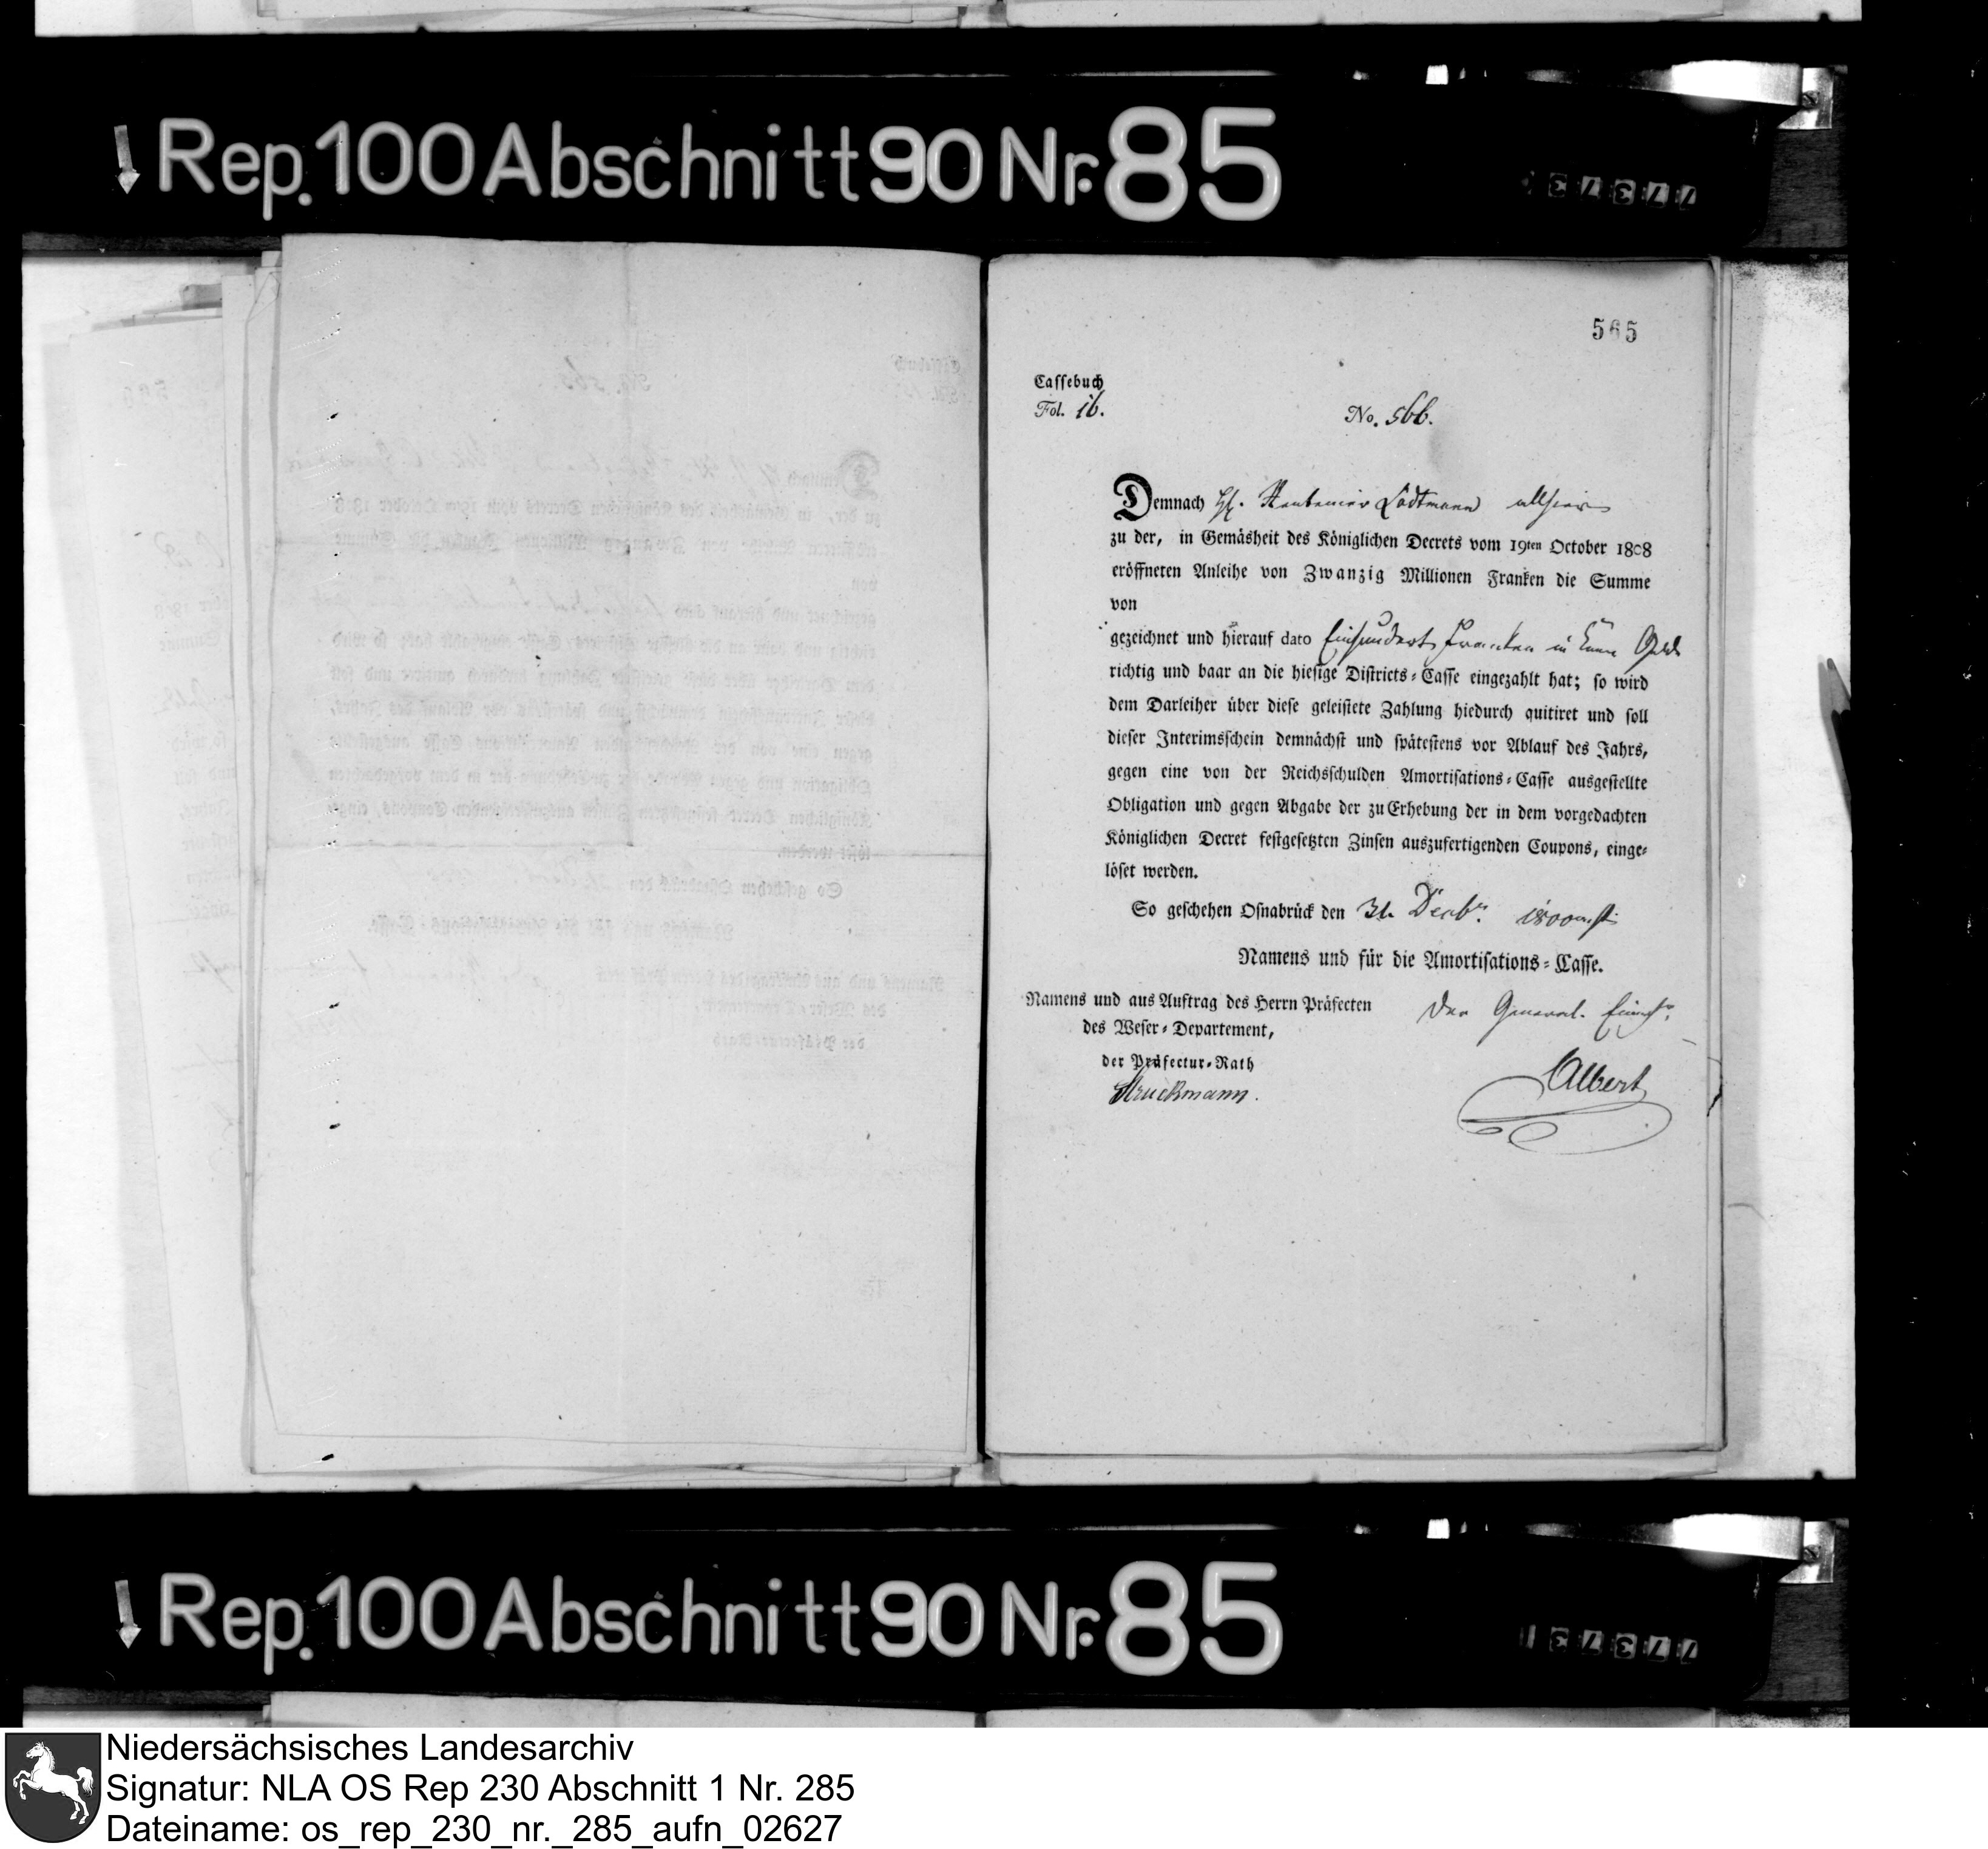 Rep. 100 Abschnitt 90 Nr. 85
565
Cassebuch
Fol. 16.
No. 566.
Demnach H. Lodtmann allhier
zu der, in Gemäsheit des Königlichen Decrets vom 19ten October 1808
eröffneten Anleihe von Zwanzig Millionen Franken die Summe
von
gezeichnet und hierauf dato Einhundert Franken in Geld
richtig und baar an die hiesige Districts-Casse eingezahlt hat; so wird
dem Darleiher über diese geleistete Zahlung hiedurch quitiret und soll
dieser Interimsschein demnächst und spätestens vor Ablauf des Jahrs,
gegen eine von der Reichsschulden Amortisations-Casse ausgestellte
Obligation und gegen Abgabe der zu Erhebung der in dem vorgedachten
Königlichen Decret festgesetzten Zinsen auszufertigenden Coupons, einge-
löset werden.
So geschehen Osnabrück den 31. Decbr.
Namens und für die Amortisations-Casse.
Namens und aus Auftrag des Herrn Präfecten
des Weser-Departement,
der Präfectur-Rath
Struckmann.
Der General-
Albert
Rep. 100 Abschnitt 90 Nr. 85
Niedersächsisches Landesarchiv
Signatur: NLA OS Rep 230 Abschnitt 1 Nr. 285
Dateiname: os_rep_230_nr._285_aufn_02627